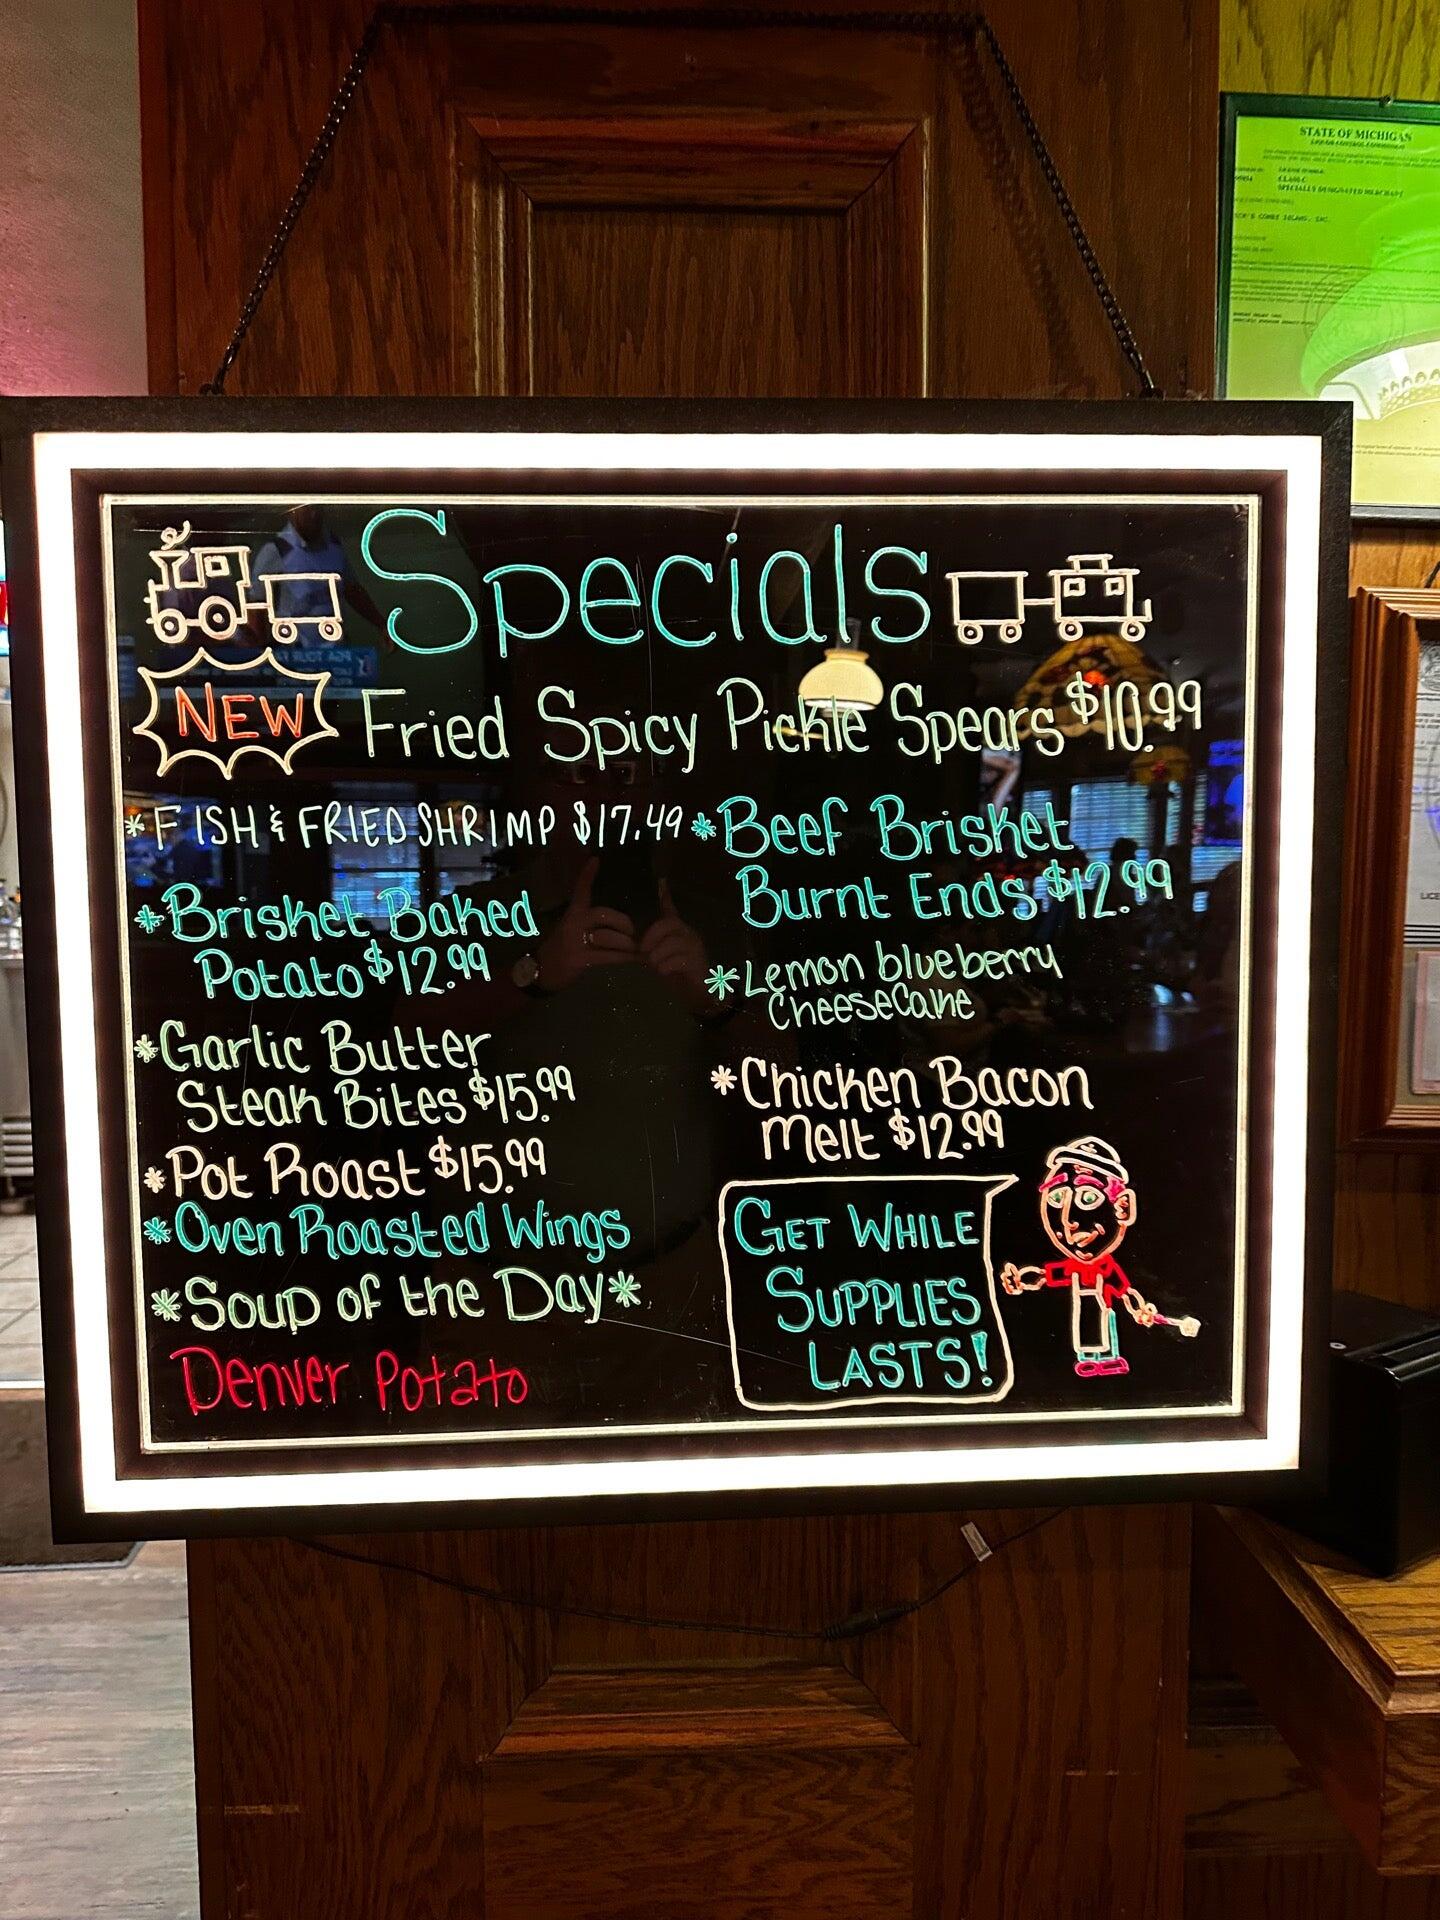 Specials
NEW
Fried Spicy Pickle Spears $10.99
*FISH & FRIED SHRIMP $17.49
*Brisket Baked
Potato $12.99
*Garlic Butter
Steak Bites $15.99
*Pot Roast $15.99
*Oven Roasted Wings
*Soup of the Day*
Denver Potato
*Beef Brisket
Burnt Ends $12.99
*Lemon blueberry
Cheesecake
*Chicken Bacon
Melt $12.99
GET WHILE
SUPPLIES
LASTS!
STATE OF MICHIGAN
LIQUOR CONTROL COMMISSION
CLASS C
SPECIALLY DESIGNATED MERCHANT